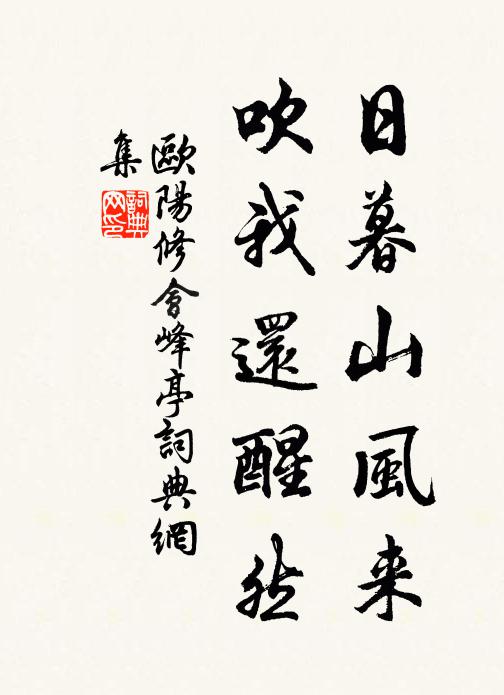 日暮山風来
吹我還醒然
歐陽修會峰亭詞典網
集
詞典網印